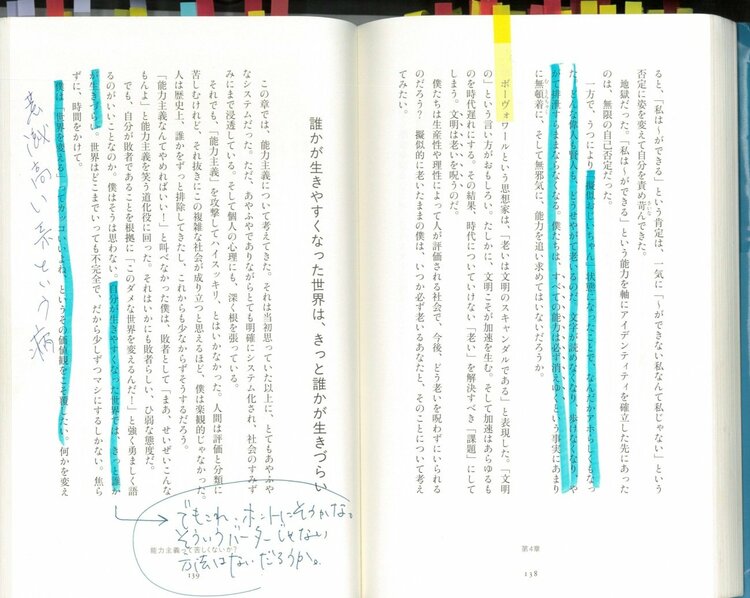 ると、「私は〜ができる」という肯定は、一気に「〜ができない私なんて私じゃない」という
否定に姿を変えて自分を責め苛んできた。
さいな
地獄だった。「私は〜ができる」という能力を軸にアイデンティティを確立した先にあった
のは、無限の自己否定だった。
一方で、うつにより「擬似おじいちゃん」状態になったことで、なんだかアホらしくもなっ
た。どんな偉人も賢人も、どうせやがて老いるのだ。文字が読めなくなり、歩けなくなり、や
がて排泄すらままならなくなる。僕たちは、すべての能力は必ず消えゆくという事実にあまり
に無頓着に、そして無邪気に、能力を追い求めてはいないだろうか。
ボーヴォワールという思想家は、「老いは文明のスキャンダルである」と表現した。「文明
の」という言い方がおもしろい。たしかに、文明こそが加速を生む。そして加速はあらゆるも
のを時代遅れにする。その結果、時代についていけない「老い」を解決すべき「課題」にして
しまう。文明は老いを呪うのだ。
僕たちは生産性や理性によって人が評価される社会で、今後、どう老いを呪わずにいられる
のだろう？ 擬似的に老いたままの僕は、いつか必ず老いるあなたと、そのことについて考え
てみたい。
第4章
138
誰かが生きやすくなった世界は、きっと誰かが生きづらい
この章では、能力主義について考えてきた。それは当初思っていた以上に、とてもあやふや
なシステムだった。ただ、あやふやでありながらとても明確にシステム化され、社会のすみず
みにまで浸透している。そして個人の心理にも、深く根を張っている。
それでも、「能力主義」を攻撃してハイスッキリ、とはいかなかった。人間は評価と分類に
苦しむけれど、それ抜きにこの複雑な社会が成り立つと思えるほど、僕は楽観的じゃなかった。
人は歴史上、誰かをずっと排除してきたし、これからも少なからずそうするだろう。
「能力主義なんてやめればいい！」と叫べなかった僕は、敗者として「まあ、せいぜいこんな
もんよ」と能力主義を笑う道化役に回った。それはいかにも敗者らしい、ひ弱な態度だ。
でも、自分が敗者であることを根拠に「このダメな世界を変えるんだ！」と強く勇ましく語
るのがいいことなのか。僕はそうは思わない。自分が生きやすくなった世界では、きっと誰か
が生きづらい。世界はどこまでいっても不完全で、だから少しずつマシにするしかない。焦ら
ずに、時間をかけて。
僕は「世界を変える」ってカッコいいよね、というその価値観をこそ覆したい。何かを変え
意識高い系という病
でもこれ、ホントにそうかな。
そういうバーターじゃない
方法はないだろうか。
能力主義って苦しくないか？
139